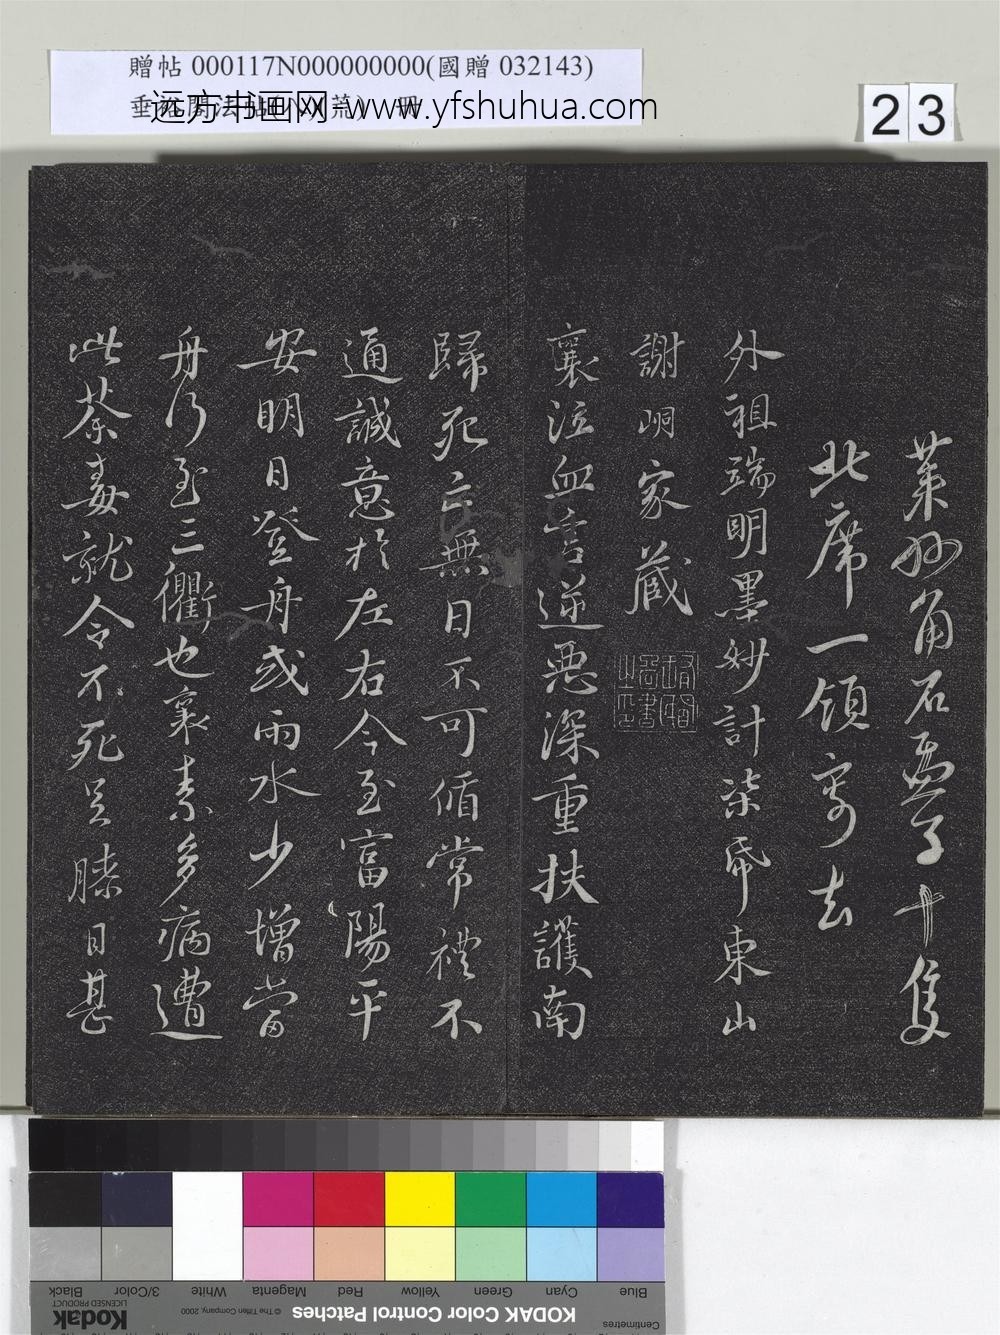 贈帖 000117N000000000(國贈 032143)
远方书画网-www.yfshuhua.com
23
北席一領寄去
外祖端明墨妙計柒帋東山
謝峒家藏
襄泣血言逆惡深重扶護南
歸死亡無日不可循常禮不
通誠意於左右今至富陽平
安明日登舟或雨水少增當
舟行至三衢也襄素多病遭
此荼毒就令不死兵膝目甚
KODAK Color Control Patches
Kodak
LICENSED PRODUCT
© The Tiffen Company, 2000
Centimetres
Blue
Cyan
Green
Yellow
Red
Magenta
White
3/Color
Black